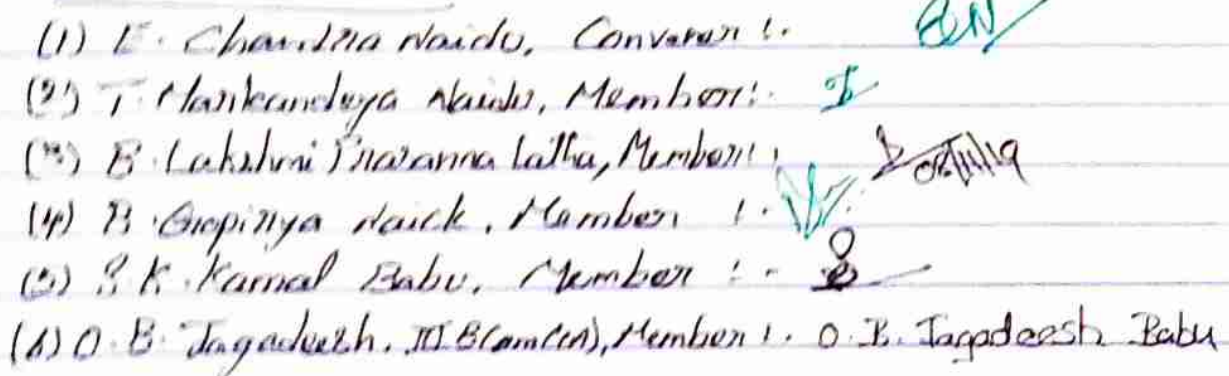 (1) E. Chandra Naidu, Convenor :-
(2) T. Markandeya Naidu, Member :-
(3) B. Lakshmi Prasanna Latha, Member :- 08/11/19
(4) B. Gopinya Naick, Member :-
(5) S. K. Kamal Babu, Member :-
(6) O. B. Jagadeesh, III B.Com(CA), Member :- O. B. Jagadeesh Babu